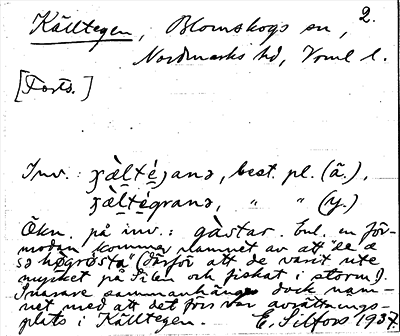 2.
Källtegen, Blomskogs sn,
Nordmarks hd, Vrml l.
[Forts.]
Inv.: ɟàltéɟanə, best. pl. (ä.),
ɟàltégranə, " " (y.)
Ökn. på inv.: gàstar. Enl. en för-
modan kommer namnet av att "ee
" (därför att de varit ute
mycket på och fiskat i storm).
Snarare sammanhänger dock nam-
net med att det förr var avrättnings-
plats i Källtegen. E. Silfors 1937.